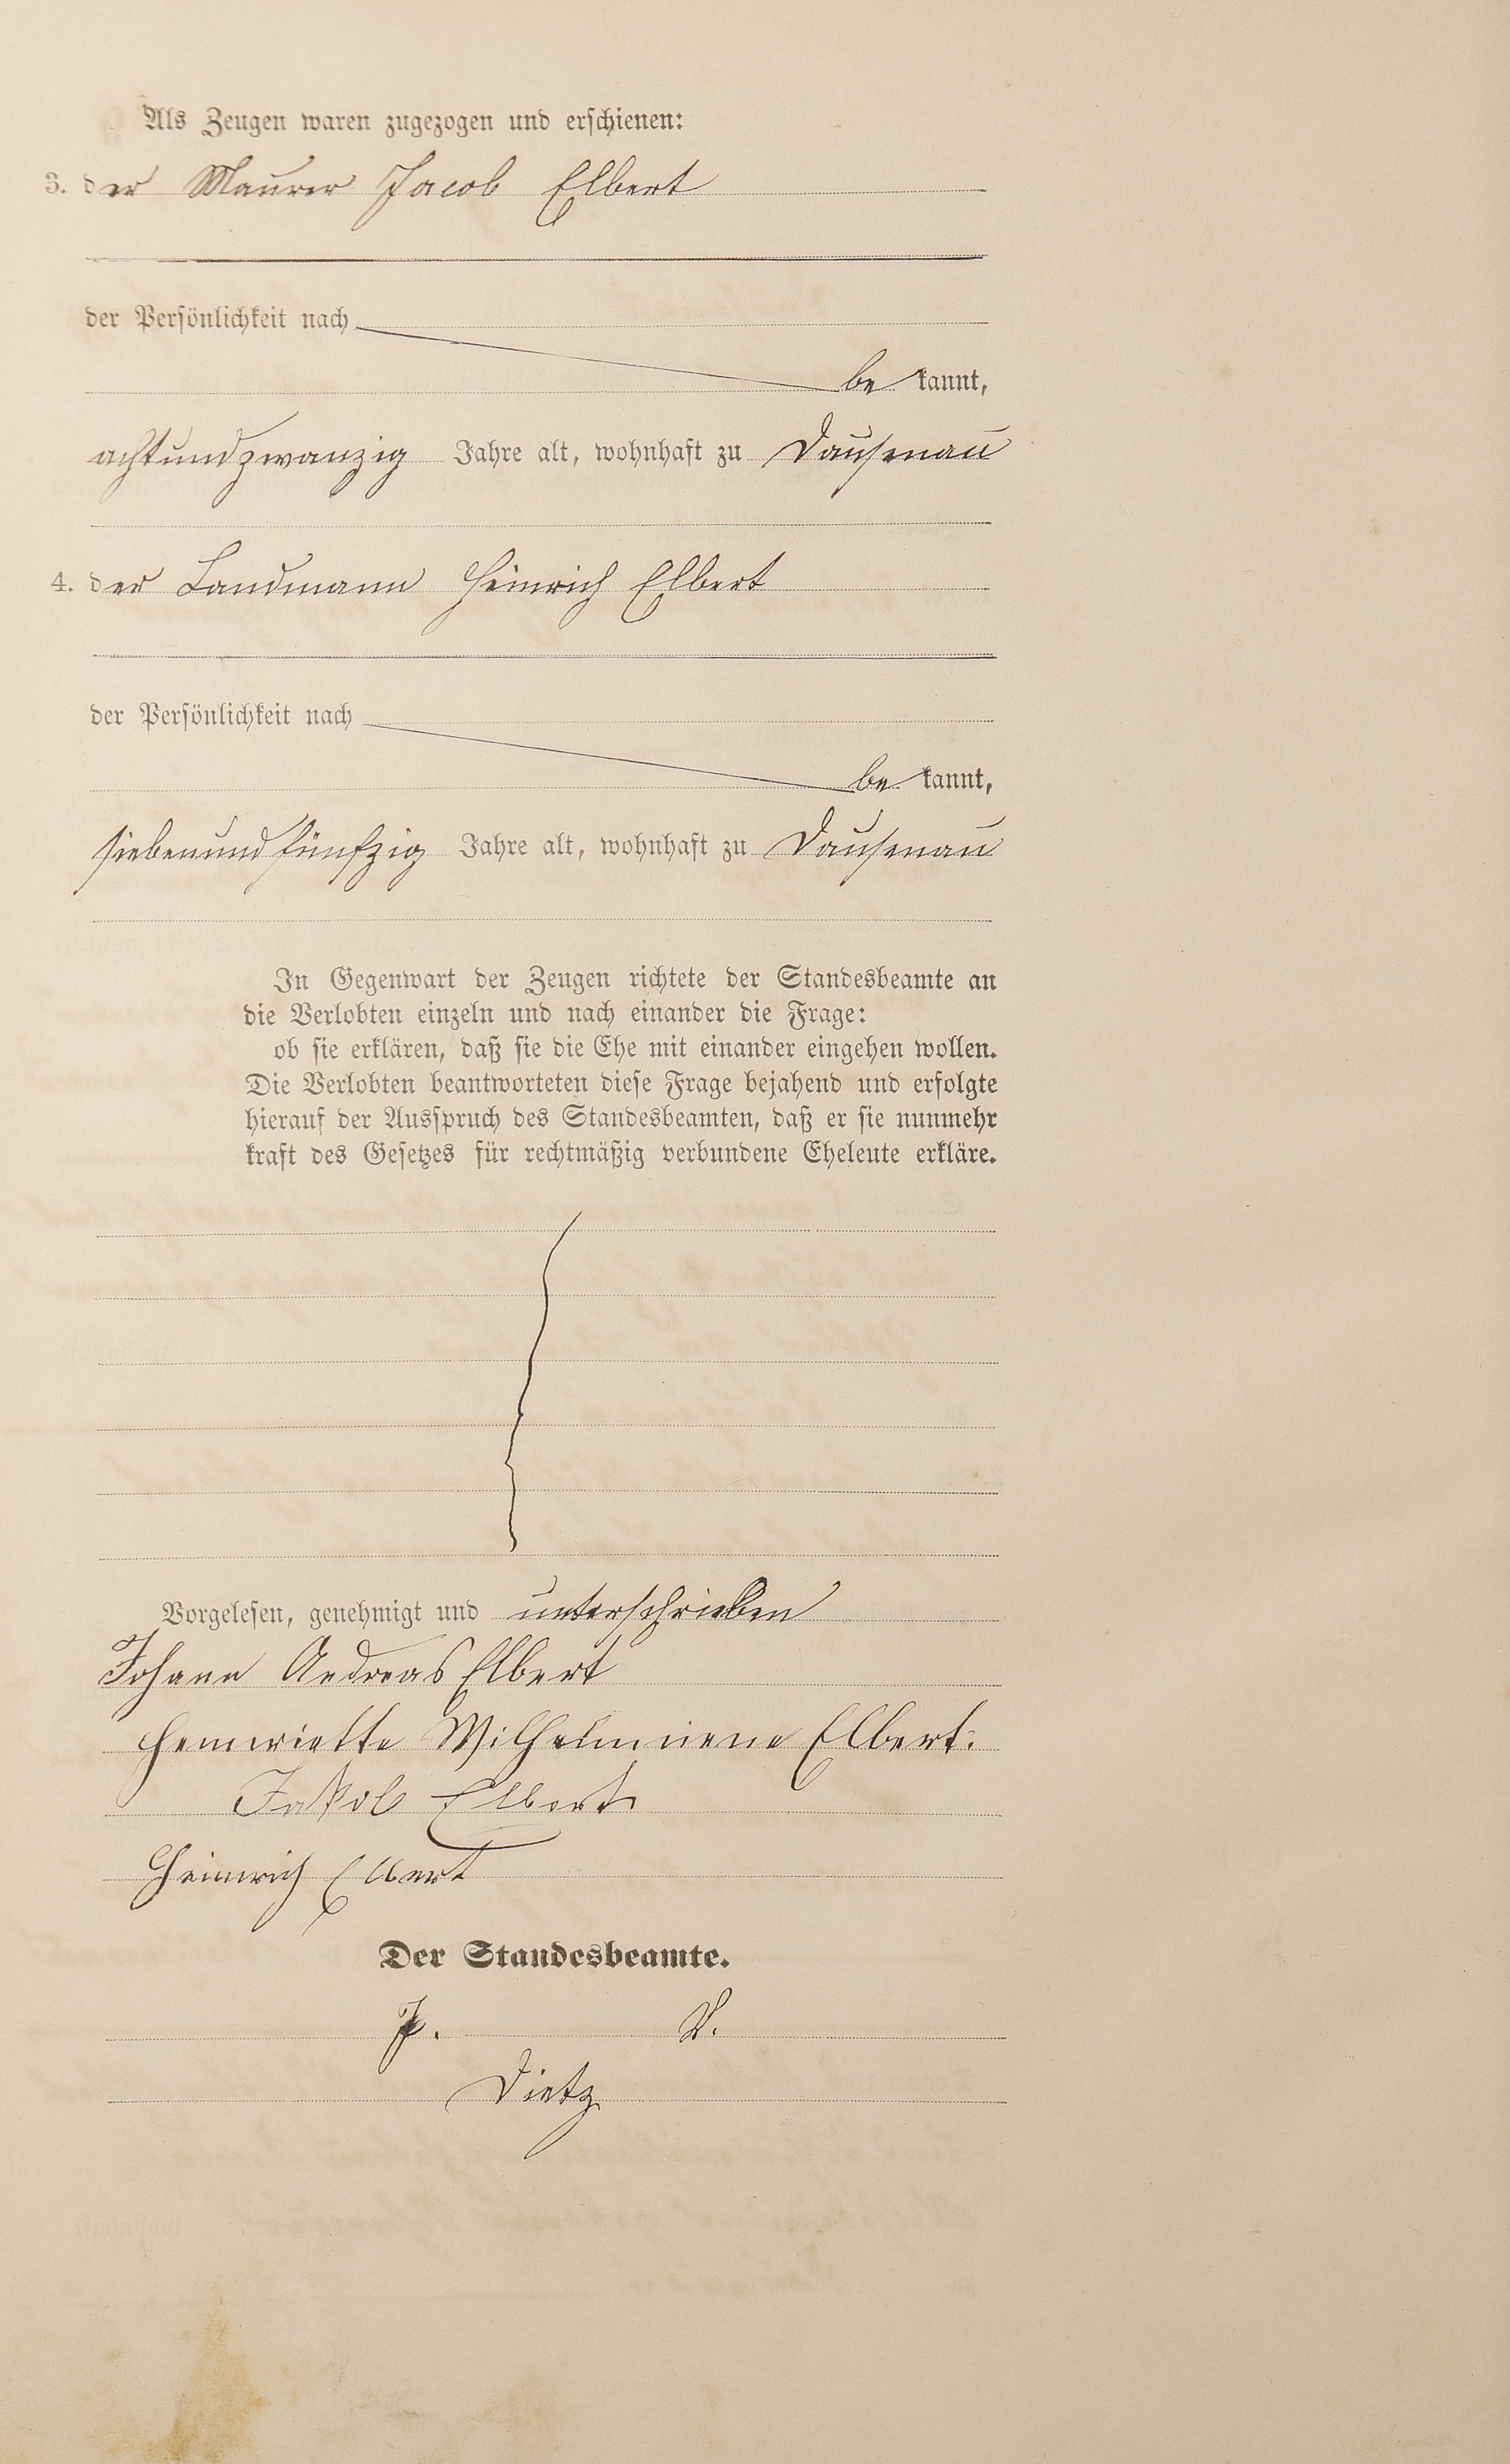 Als Zeugen waren zugezogen und erschienen:
3. der Maurer Jacob Elbert
der Persönlichkeit nach
be kannt,
achtundzwanzig Jahre alt, wohnhaft zu Dausenau
4. der Landmann Heinrich Elbert
der Persönlichkeit nach
be kannt,
siebenundfünfzig Jahre alt, wohnhaft zu Dausenau
In Gegenwart der Zeugen richtete der Standesbeamte an
die Verlobten einzeln und nach einander die Frage:
ob sie erklären, daß sie die Ehe mit einander eingehen wollen.
Die Verlobten beantworteten diese Frage bejahend und erfolgte
hierauf der Ausspruch des Standesbeamten, daß er sie nunmehr
kraft des Gesetzes für rechtmäßig verbundene Eheleute erkläre.
Vorgelesen, genehmigt und unterschrieben
Johann Andreas Elbert
Hennriette Wilhelmiene Elbert.
Jakob Elbert
Heinrich Elbert
Der Standesbeamte.
J. V.
Dietz